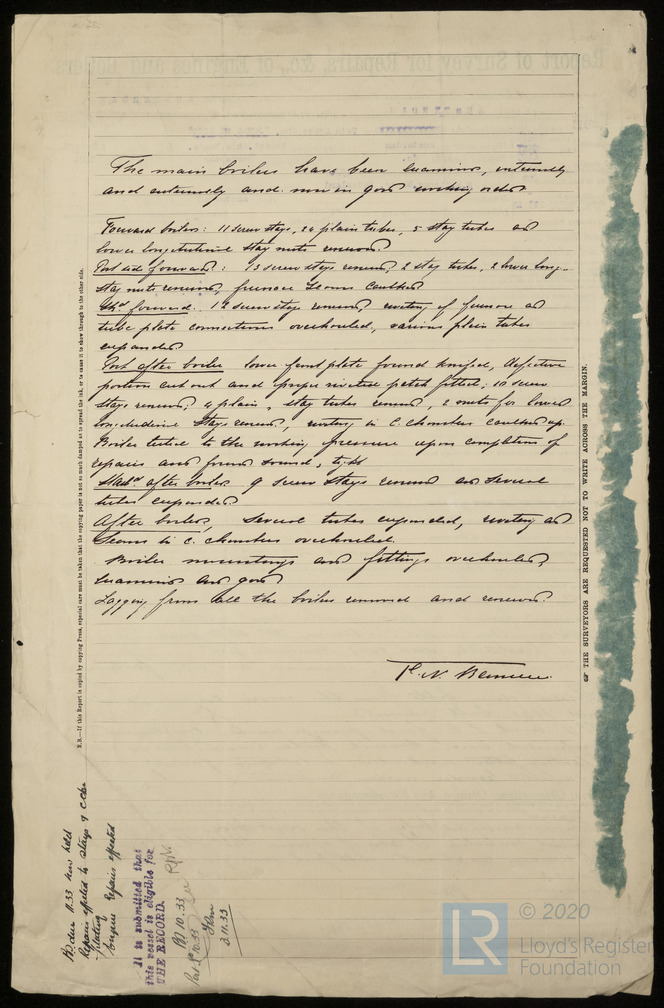 The main boilers have been examined, internally
and externally and now in good working order
Forward boilers: 11 screw stays, 24 plain tubes, 5 stay tubes and
lower longitudinal stay nuts renewed
Port side forward: 13 screw stays renewed, 2 stay tubes, 2 lower long.
stay nuts renewed, furnace seams caulked
Stbd forward. 12 screw stays renewed, riveting of furnace and
tube plate connections overhauled, various plain tubes
expanded
Port after boiler lower front plate found, defective
portion cut out and proper riveted patch fitted; 10 screw
stays renewed; 4 plain, stay tubes renewed, 2 nuts for lower
longitudinal stays renewed, riveting in C. chambers caulked up.
Boiler tested to the working pressure upon completion of
repairs and found sound, tight
Starbd after boiler 9 screw stays renewed and several
tubes expanded
After boiler, several tubes expanded, riveting and
seams in C. chambers overhauled.
Boiler mountings and fittings overhauled,
examined and good
Lagging from all the boilers removed and renewed.
N.B.—If this Report is copied by copying Press, especial care must be taken that the copying paper is not so much damped as to spread the ink, or to cause it to show through to the other side.
☞ THE SURVEYORS ARE REQUESTED NOT TO WRITE ACROSS THE MARGIN.
11.33 now held
Repairs effected to stays & C. Chbr
Plating
Repairs effected
It is submitted that
this vessel is eligible for
THE RECORD.
10.33
3.11.33
LR
© 2020
Lloyd's Register
Foundation